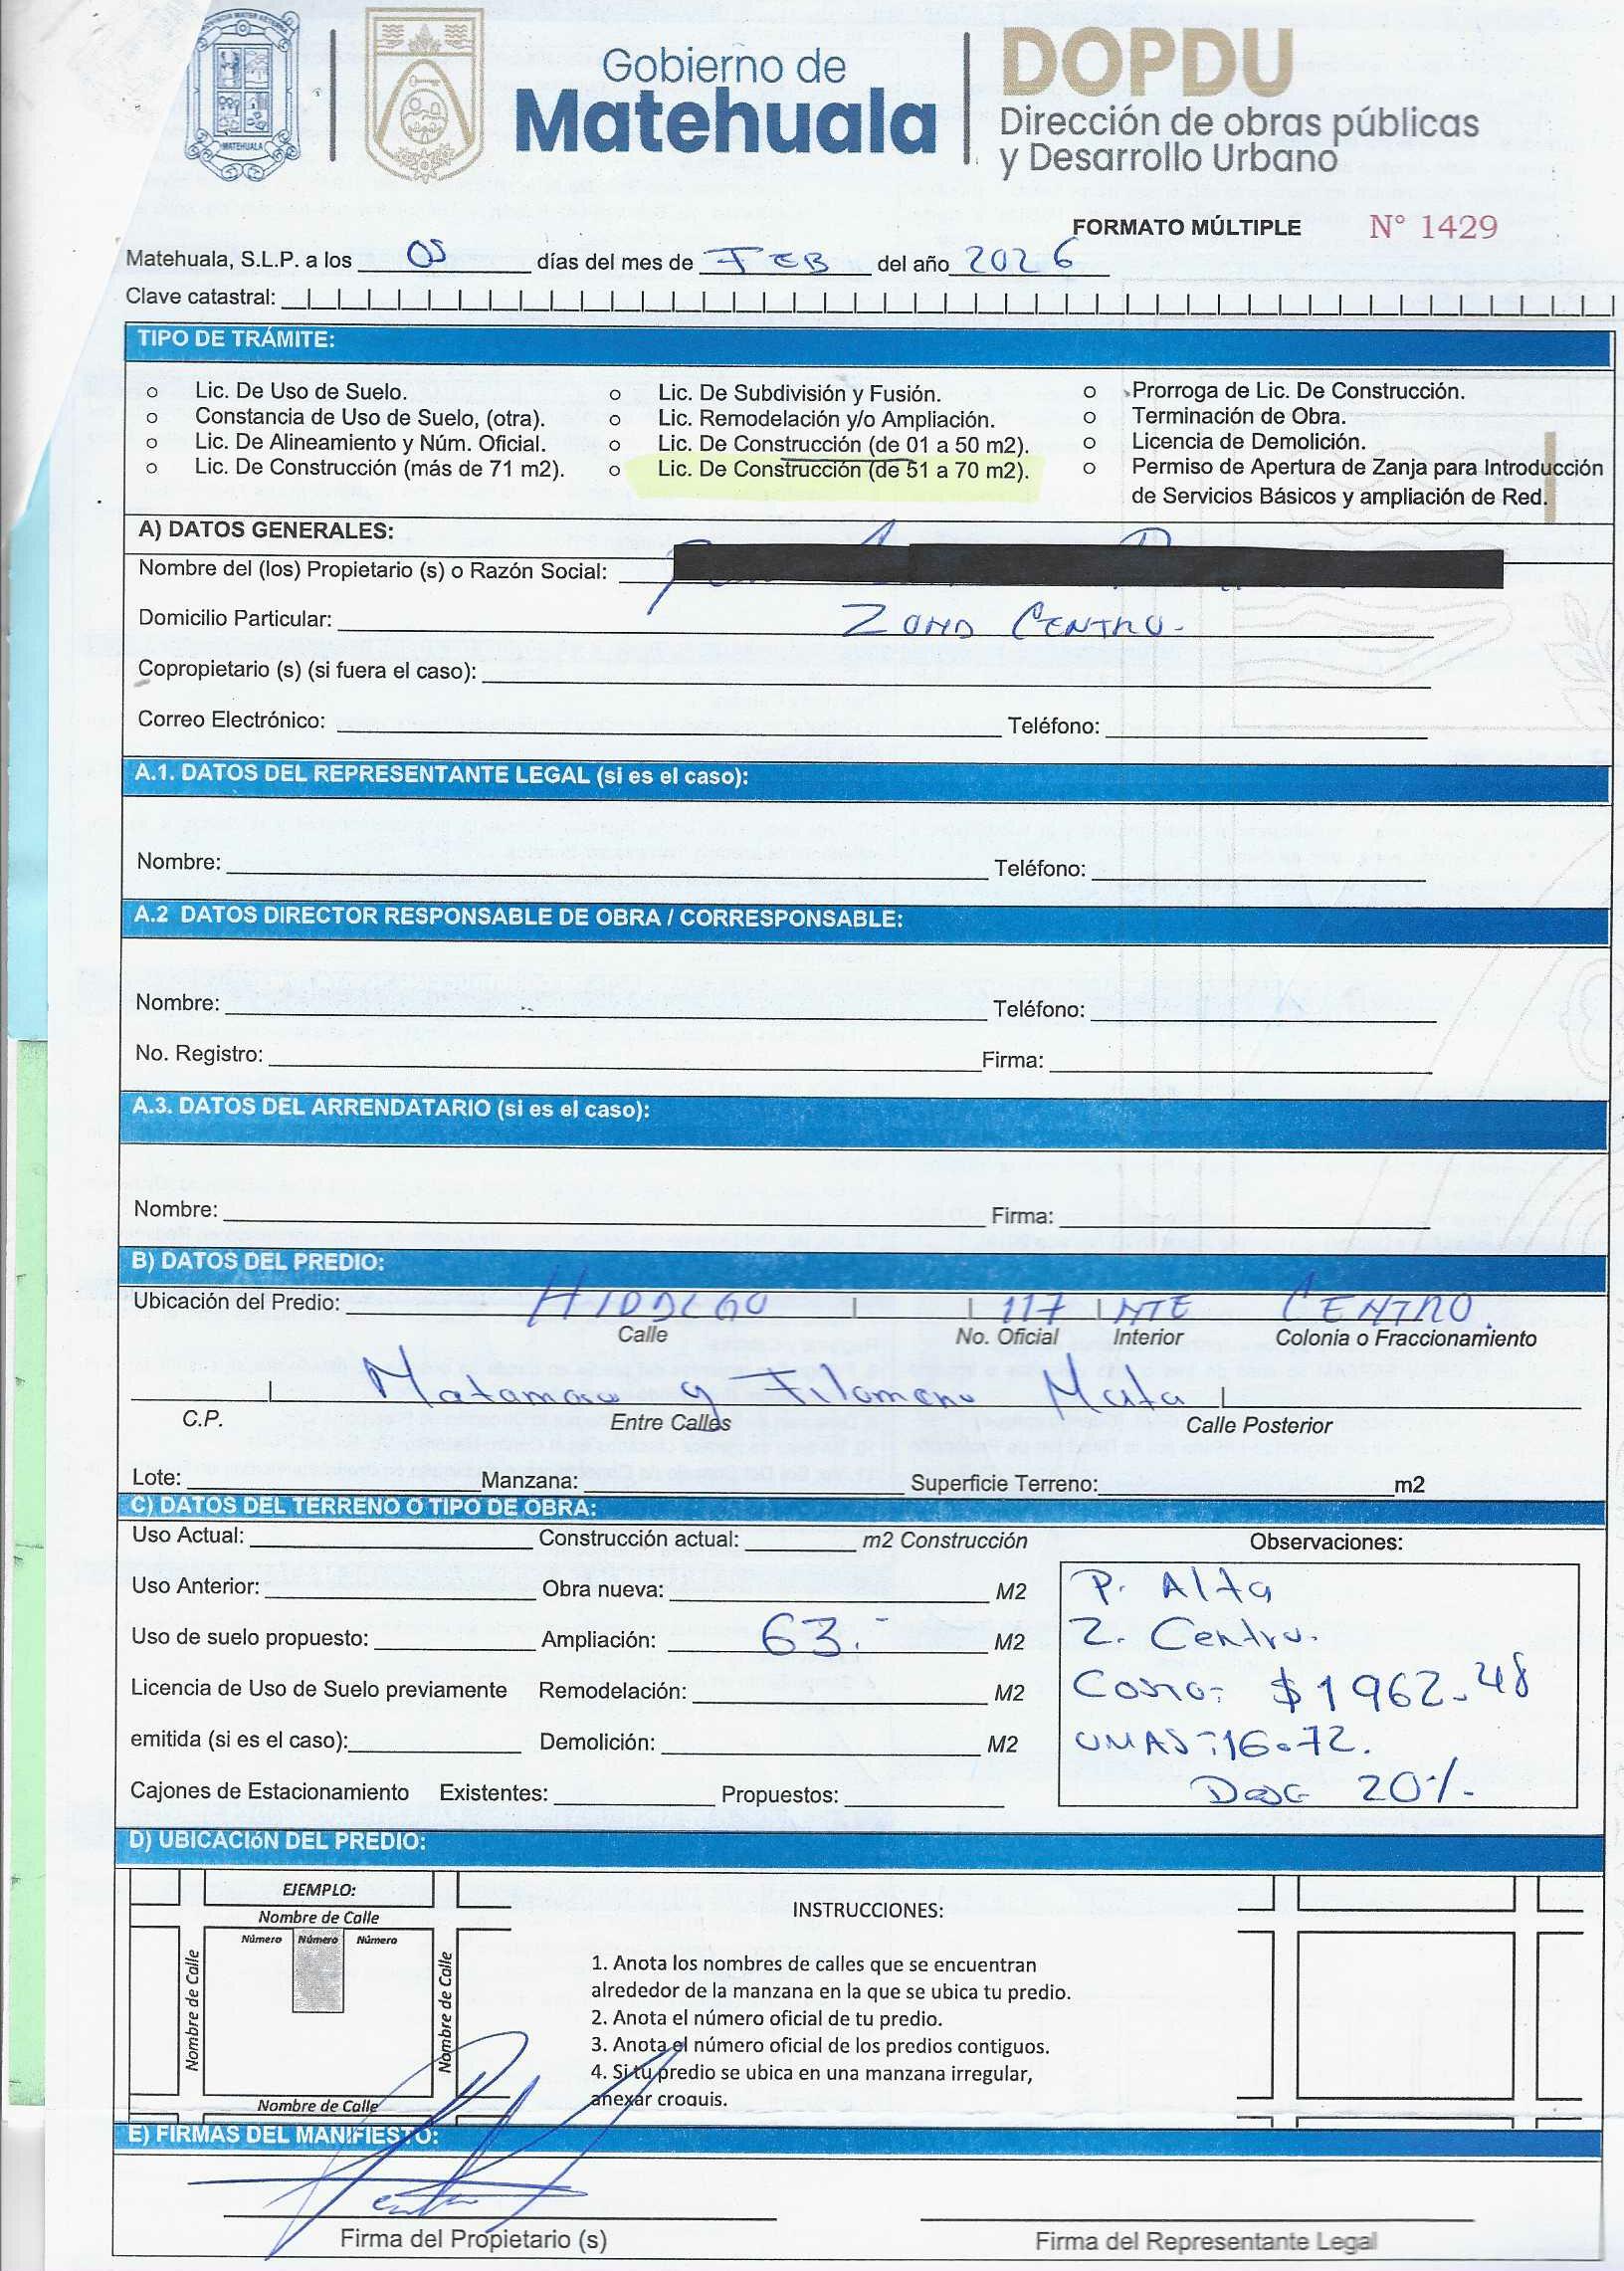 MATEHUALA
Gobierno de
Matehuala
DOPDU
Dirección de obras públicas
y Desarrollo Urbano
FORMATO MÚLTIPLE N° 1429
Matehuala, S.L.P. a los 05 días del mes de FEB del año 2026
Clave catastral:
TIPO DE TRÁMITE:
o Lic. De Uso de Suelo. o Lic. De Subdivisión y Fusión. o Prorroga de Lic. De Construcción.
o Constancia de Uso de Suelo, (otra). o Lic. Remodelación y/o Ampliación. o Terminación de Obra.
o Lic. De Alineamiento y Núm. Oficial. o Lic. De Construcción (de 01 a 50 m2). o Licencia de Demolición.
o Lic. De Construcción (más de 71 m2). o Lic. De Construcción (de 51 a 70 m2). o Permiso de Apertura de Zanja para Introducción
de Servicios Básicos y ampliación de Red.
A) DATOS GENERALES:
Nombre del (los) Propietario (s) o Razón Social:
Domicilio Particular: ZONA CENTRO.
Copropietario (s) (si fuera el caso):
Correo Electrónico: Teléfono:
A.1. DATOS DEL REPRESENTANTE LEGAL (si es el caso):
Nombre: Teléfono:
A.2 DATOS DIRECTOR RESPONSABLE DE OBRA / CORRESPONSABLE:
Nombre: Teléfono:
No. Registro: Firma:
A.3. DATOS DEL ARRENDATARIO (si es el caso):
Nombre: Firma:
B) DATOS DEL PREDIO:
Ubicación del Predio: HIDALGO 117 NTE CENTRO.
Calle No. Oficial Interior Colonia o Fraccionamiento
Matamoros y Filomeno Mata
C.P. Entre Calles Calle Posterior
Lote: Manzana: Superficie Terreno: m2
C) DATOS DEL TERRENO O TIPO DE OBRA:
Uso Actual: Construcción actual: m2 Construcción Observaciones:
Uso Anterior: Obra nueva: M2 P. Alta
Uso de suelo propuesto: Ampliación: 63.- M2 Z. Centro.
Licencia de Uso de Suelo previamente Remodelación: M2 Costo: $1962.48
emitida (si es el caso): Demolición: M2 UMAS: 16.72.
Cajones de Estacionamiento Existentes: Propuestos: Desc 20%
D) UBICACIóN DEL PREDIO:
EJEMPLO:
Nombre de Calle
Número Número Número
Nombre de Calle
Nombre de Calle
Nombre de Calle
INSTRUCCIONES:
1. Anota los nombres de calles que se encuentran
alrededor de la manzana en la que se ubica tu predio.
2. Anota el número oficial de tu predio.
3. Anota el número oficial de los predios contiguos.
4. Si tu predio se ubica en una manzana irregular,
anexar croquis.
E) FIRMAS DEL MANIFIESTO:
Firma del Propietario (s) Firma del Representante Legal